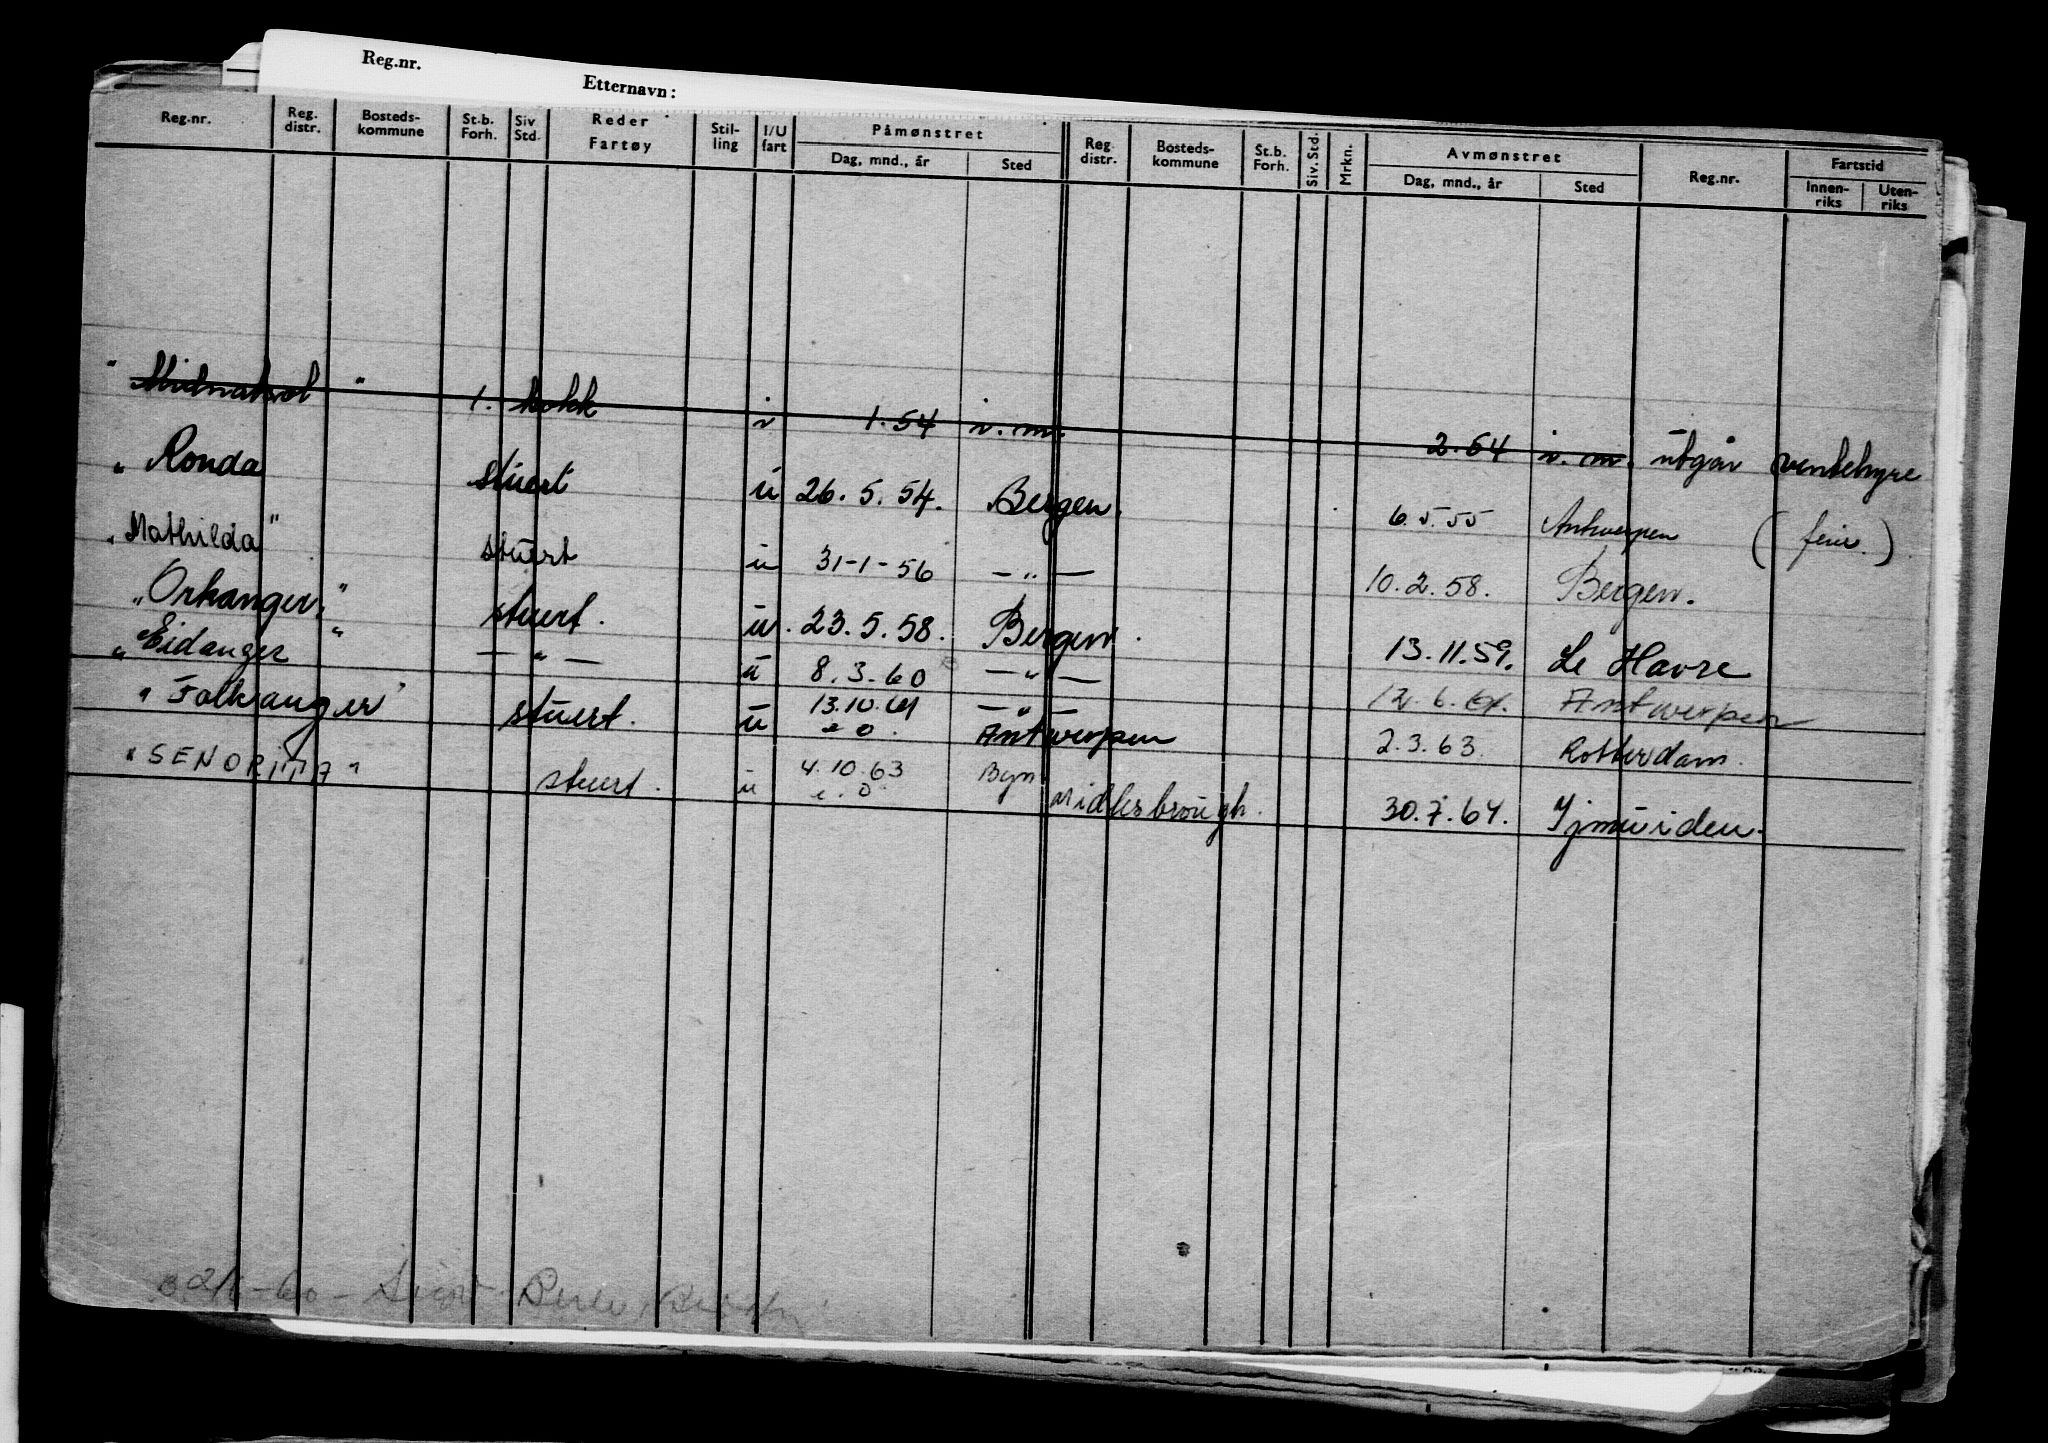 Reg.nr.
Etternavn:
Reg.nr. Reg. distr. Bosteds-kommune St.b. Forh. Siv Std. Reder Fartøy Stil-ling I/U fart Påmønstret Dag, mnd., år Sted Reg distr. Bosteds-kommune St.b. Forh. Siv. Std. Mrkn. Avmønstret Dag, mnd., år Sted Reg.nr. Fartstid Innen-riks Uten-riks
" Midnatsol " 1. kokk i 1.54 i.m. 2.54 i.m. utgår ventehyre
" Ronda stuert u 26.5.54. Bergen. 6.5.55 Antwerpen ( feriе.)
"Mathilda" stuert u 31-1-56 —"— 10.2.58. Bergen.
"Orkanger." stuert. u. 23.5.58. Bergen. 13.11.59. Le Havre
"Eidanger " —"— u 8.3.60 —"— 12.6.61. Antwerpen
" Falkanger" stuert. u 13.10.61 —"—
e o. Antwerpen 2.3.63. Rotterdam.
"SENORITA" stuert. u 4.10.63 Bgn
e.o. Midlesbrough. 30.7.64. Yjmuiden.